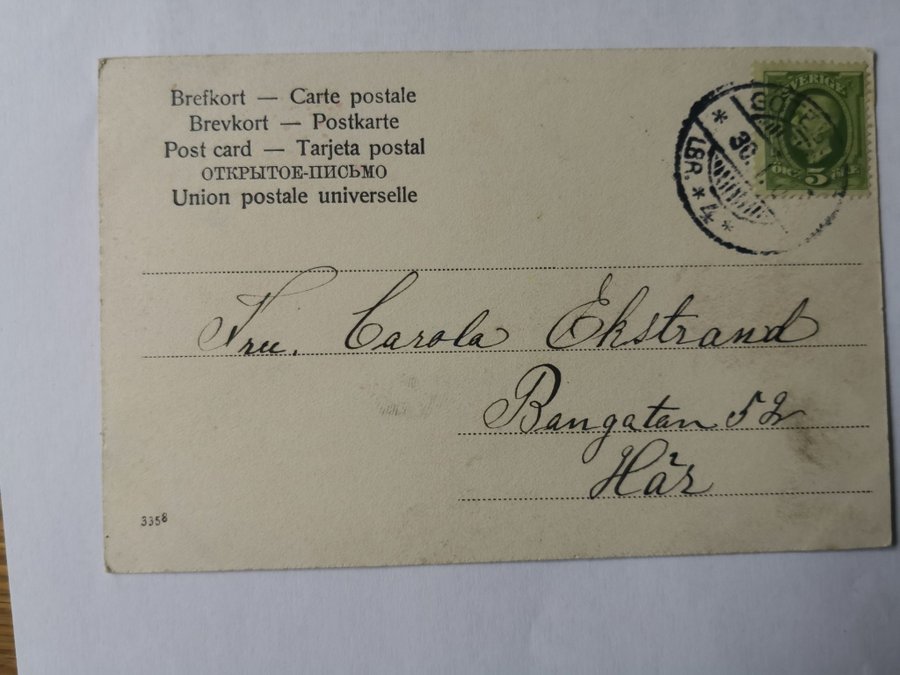 Brefkort — Carte postale
Brevkort — Postkarte
Post card — Tarjeta postal
ОТКРЫТОЕ-ПИСЬМО
Union postale universelle
SVERIGE
5
30.
LBR.
Fru. Carola Ekstrand
Bangatan 52
Här
3358